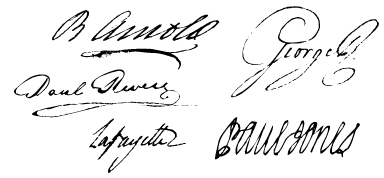 B Arnold
George R
Paul Revere
Lafayette
Paul Jones